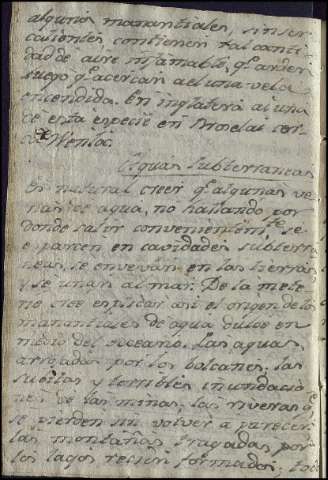 algunos manantiales, sin ser
calientes contienen tal canti
dad de aire inflamable, qe. arden
luego qe. acercan a el una vela
encendida. En inglaterra ai una
de esta especie en Broselai cer
ca Wenloc.
Aguas subterraneas
Es natural creer qe. algunas ve
nas de agua, no hallando por
donde salir convenientemte. se
esparcen en cavidades subterra
neas, se en las tierras,
y se unan al mar. De la mete
no cree esplicar asi el origen de los
manantiales de agua dulce en
medio del occeano. Las aguas
arrojadas por los bolcanes, las
subitas y terribles inundacio
nes de las minas, las riveras qe.
se pierden sin volver a parecer
las montañas tragadas por
los lagos recien formados; todo